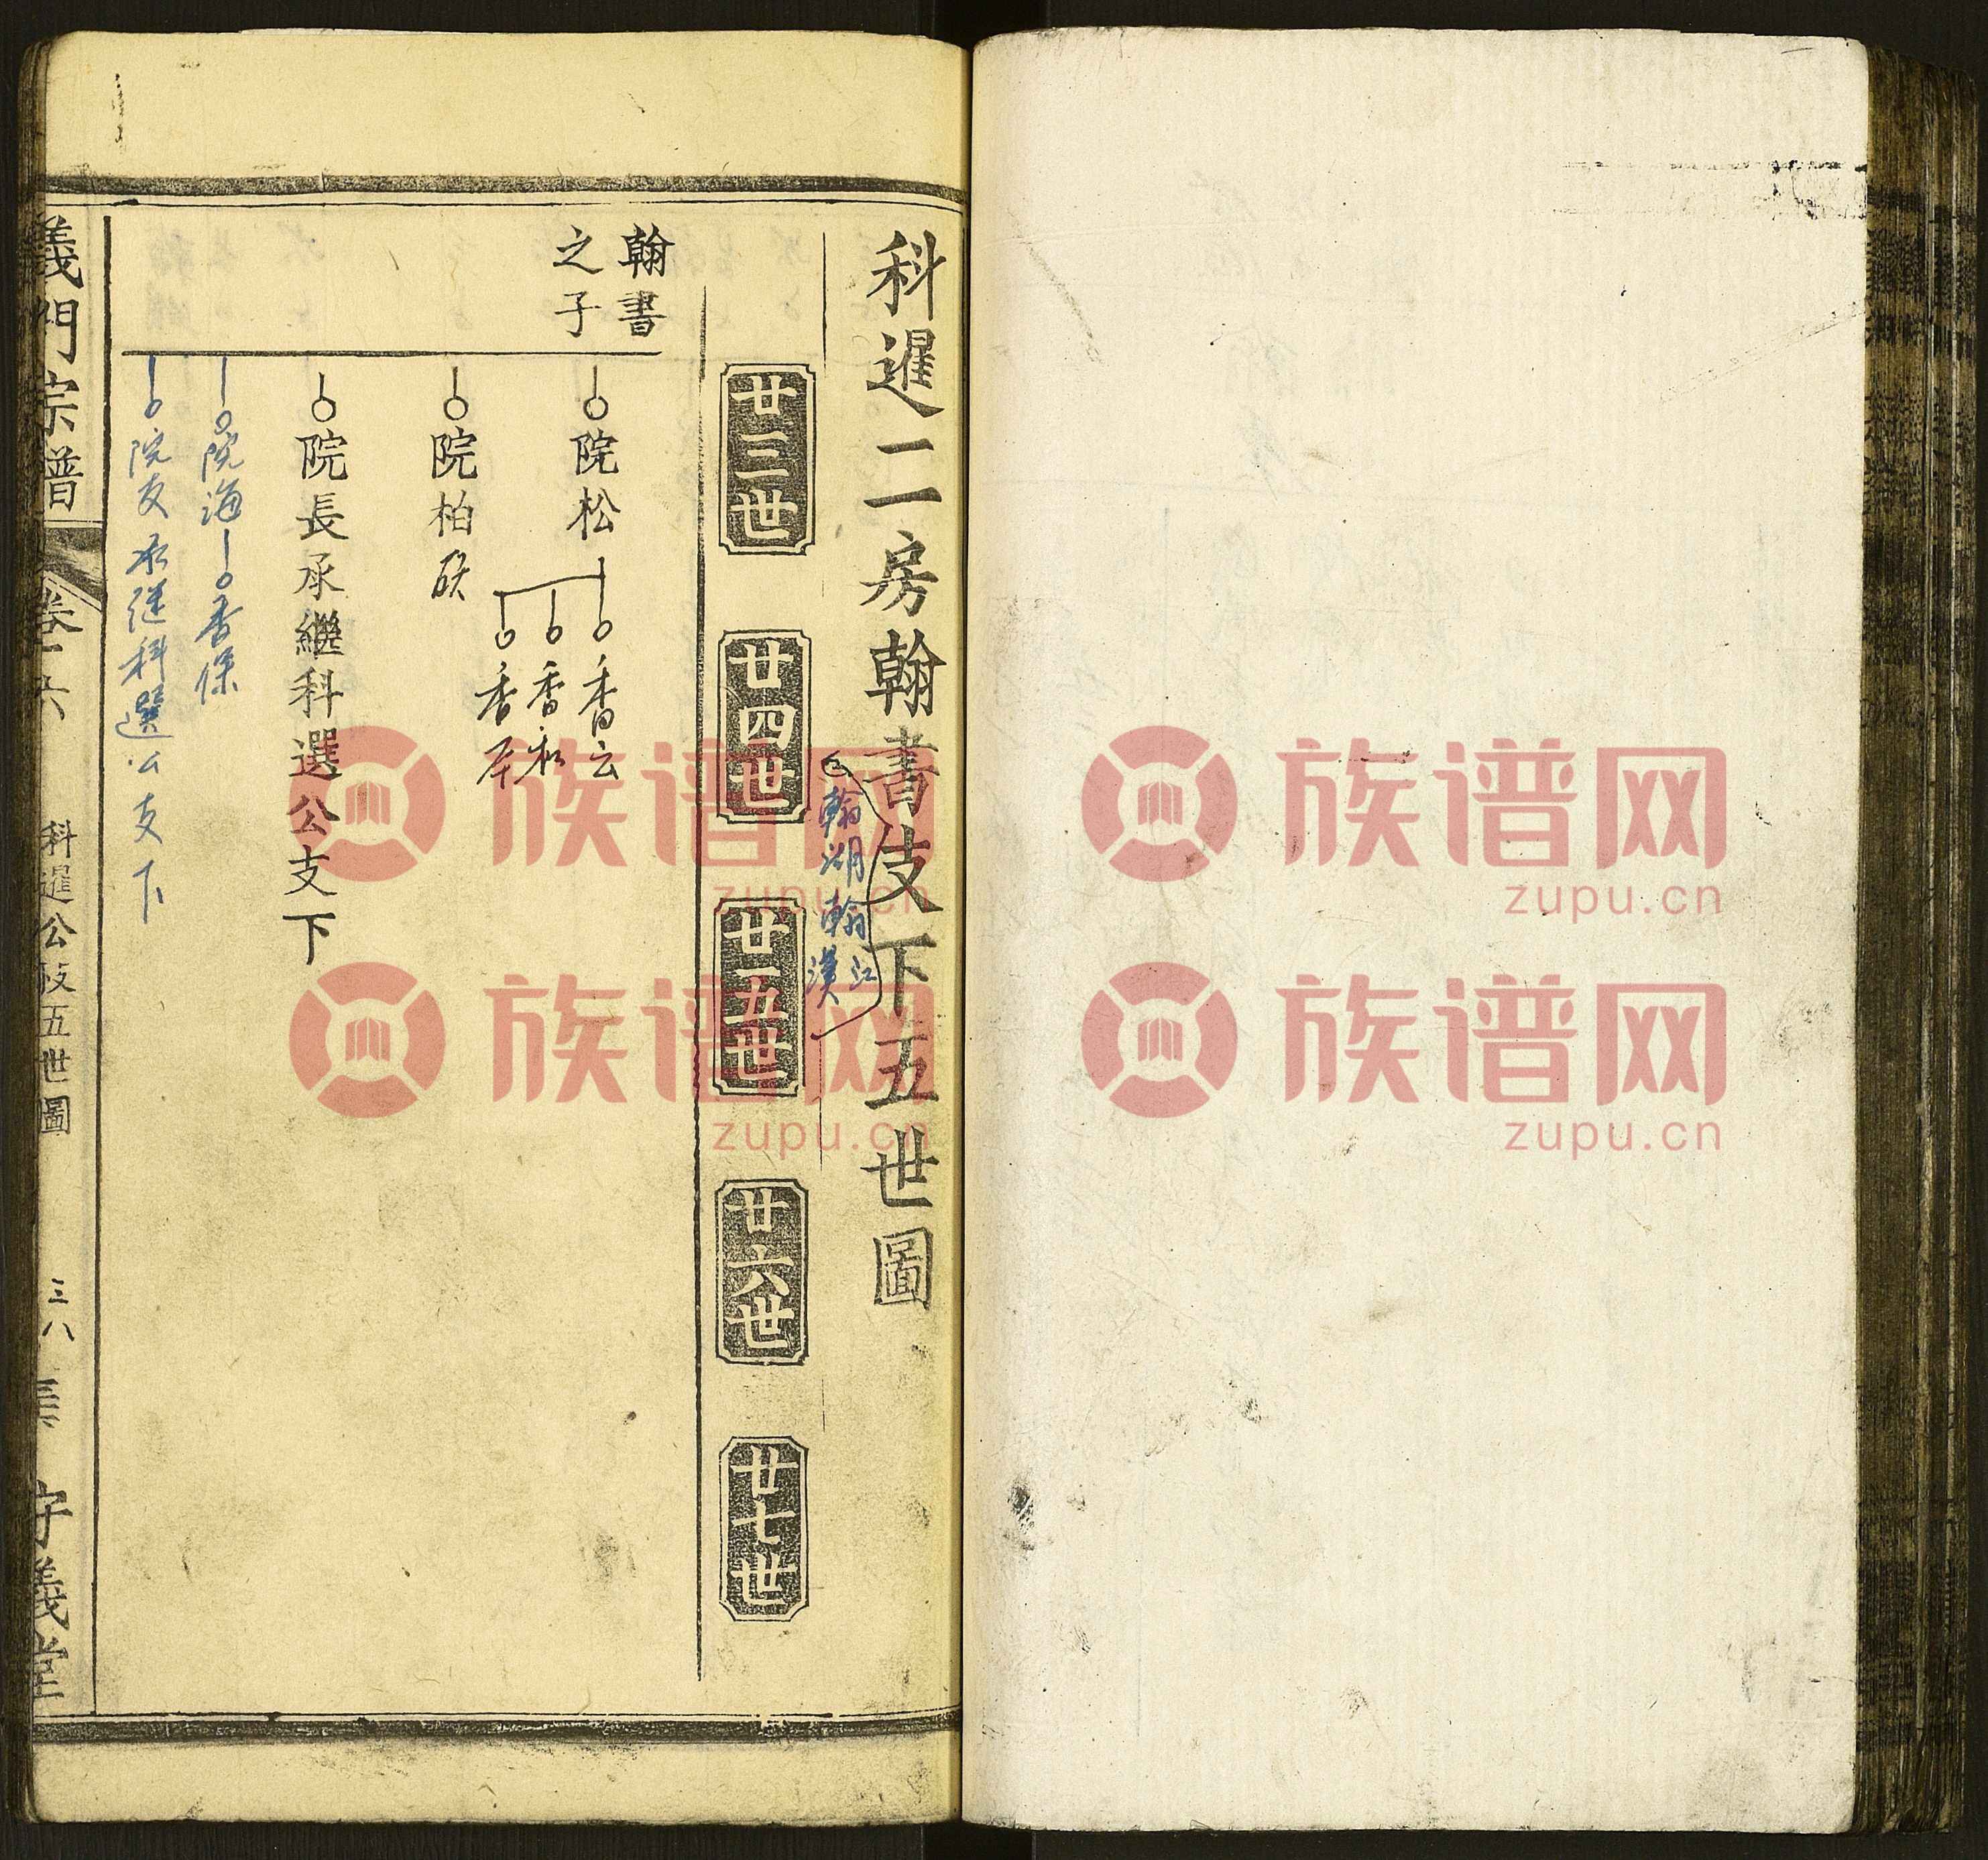 科暹二房翰書支下五世圖
翰湖翰江
漢
廿三世
廿四世
廿五世
廿六世
廿七世
翰書
之子
院松
香云
香松
香本
院柏
院長承繼科選公支下
院海
香保
院友承继科選公支下
義門宗譜
卷六
科暹公支五世圖
三八
守義堂
族谱网
zupu.cn
族谱网
zupu.cn
族谱网
zupu.cn
族谱网
zupu.cn